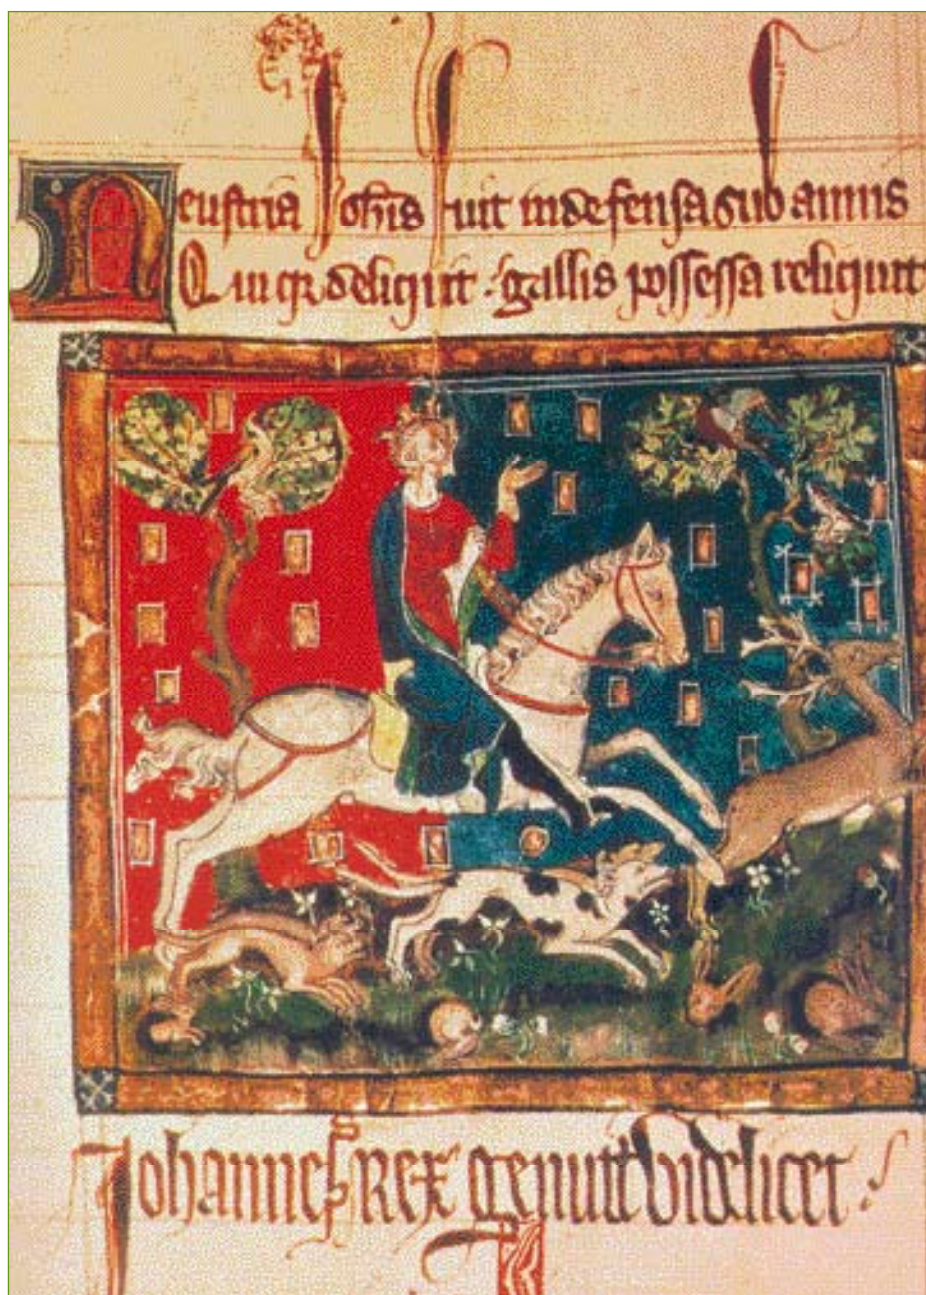 Neustria Johis fuit indefensa sub annis
Qui qr deliquit : gallis possessa reliquit
Johannes Rex genuit videlicet :